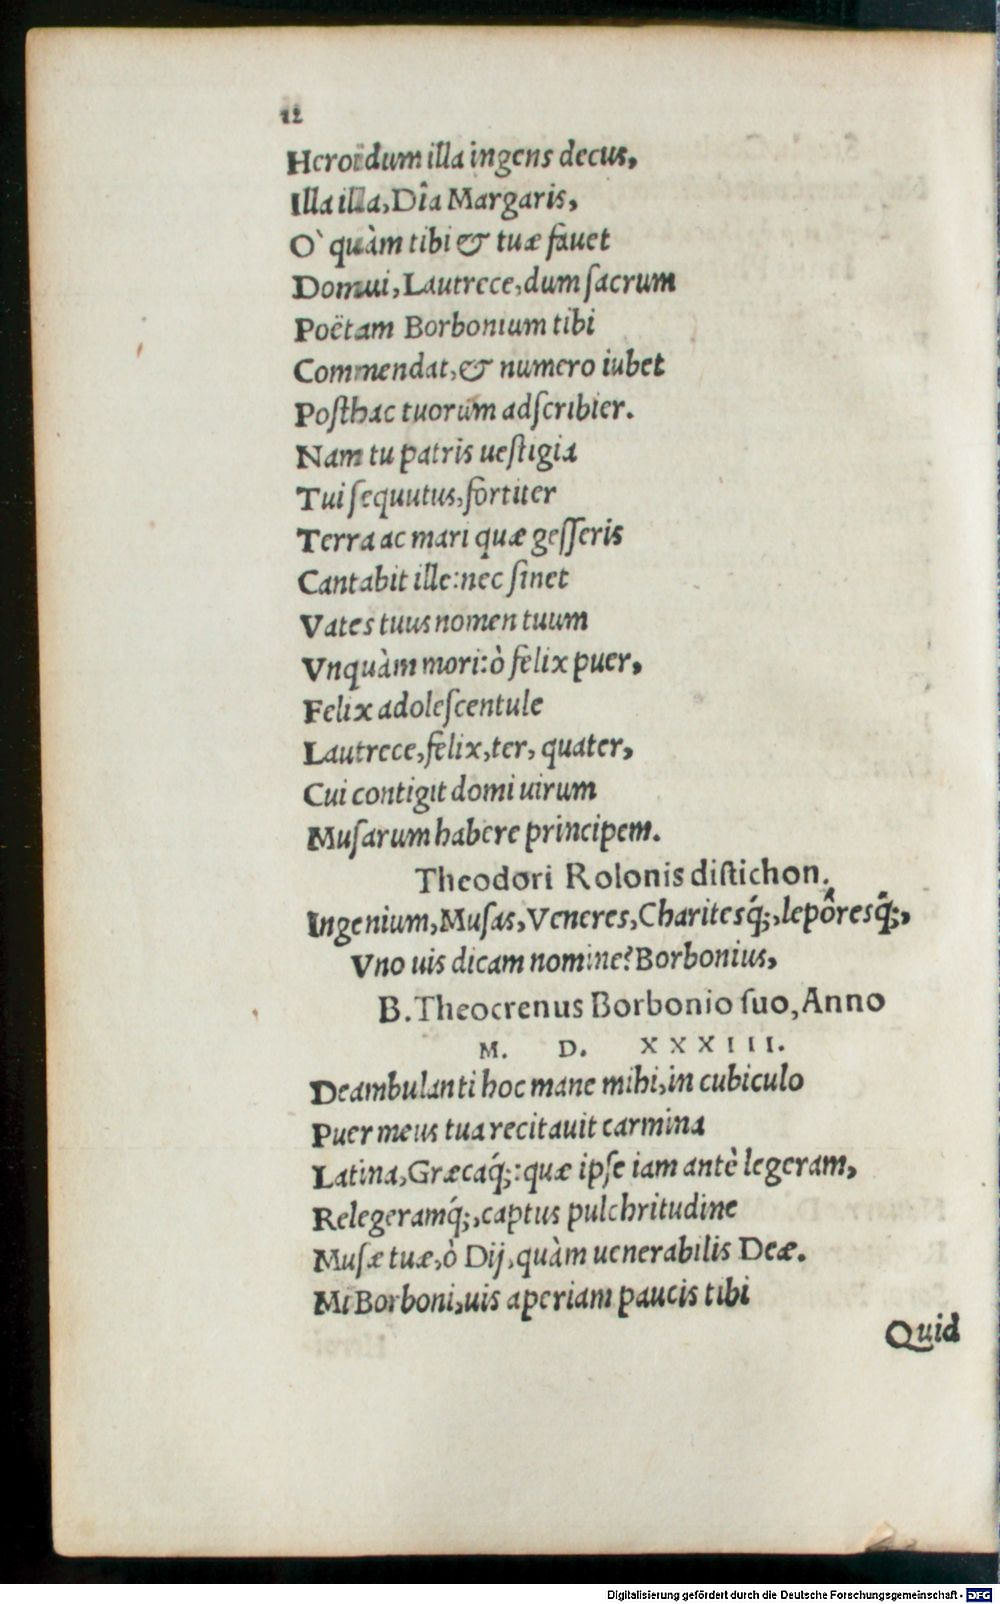 12
Heroidum illa ingens decus,
Illa illa, Dîa Margaris,
O` quàm tibi & tuæ fauet
Domui, Lautrece, dum ſacrum
Poëtam Borbonium tibi
Commendat, & numero iubet
Poſthac tuorum adſcribier.
Nam tu patris ueſtigia
Tui ſequutus, fortiter
Terra ac mari quæ geſſeris
Cantabit ille: nec ſinet
Vates tuus nomen tuum
Vnquàm mori: ò felix puer,
Felix adoleſcentule
Lautrece, felix, ter, quater,
Cui contigit domi uirum
Muſarum habere principem.
Theodori Rolonis diſtichon.
Ingenium, Muſas, Veneres, Charitesq́;, lepôresq̂;,
Vno uis dicam nomine? Borbonius,
B. Theocrenus Borbonio ſuo, Anno
M. D. XXXIII.
Deambulanti hoc mane mihi, in cubiculo
Puer meus tua recitauit carmina
Latina, Græcaq́;: quæ ipſe iam antè legeram,
Relegeramq́;, captus pulchritudine
Muſæ tuæ, ò Dij, quàm uenerabilis Deæ.
Mi Borboni, uis aperiam paucis tibi
Quid
Digitalisierung gefördert durch die Deutsche Forschungsgemeinschaft - DFG